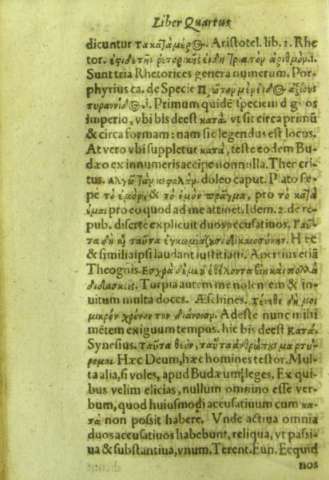 Liber Quartus
dicuntur τακαζαμέρ. Aristotel. lib. 1. Rhe
tor.
Sunt tria Rhetorices genera numerum. Por
phyrius ca. de Specie
.i. Primum quidē speciem dignos
imperio, vbi bis deest κατά. vt sit circa primū
& circa formam: nam sic legendus est locus.
At vero vbi suppletur κατά, teste eodem Bu
dæo ex innumeris accipe nonnulla. Theocri
tus. doleo caput. Plato sæ
pe τὸ ἐμόν, & τὸ ἐμὸν πρᾶγμα, pro τὸ
pro eo quod ad me attinet. Idem. 2. de re
pub. diserte explicuit duos accusatiuos.
ταῦτα δικαιοσύνην. Hęc
& similia ipsi laudant iustitiam. Apertius etiā
Theognis.
Turpia autem me nolentem &
uitum multa doces. Aeschines.
μικρὸν χρόνον τὴν διάνοιαν. Adeste nunc mihi
mētem exiguum tempus. hic bis deest κατά.
Synesius. ταῦτα θεὸν, ταῦτα
Hæc Deum, hæc homines testor. Mul
ta alia, si voles, apud Budæum, leges. Ex qui
bus velim elicias, nullum omnino esse ver
bum, quod huiusmodi accusatiuum cum κα
τὰ non possit habere. Vnde actiua omnia
duos accusatiuos habebunt, reliqua, vt passi
ua & substantiua, vnum. Terent. Eun. Ecquid
nos